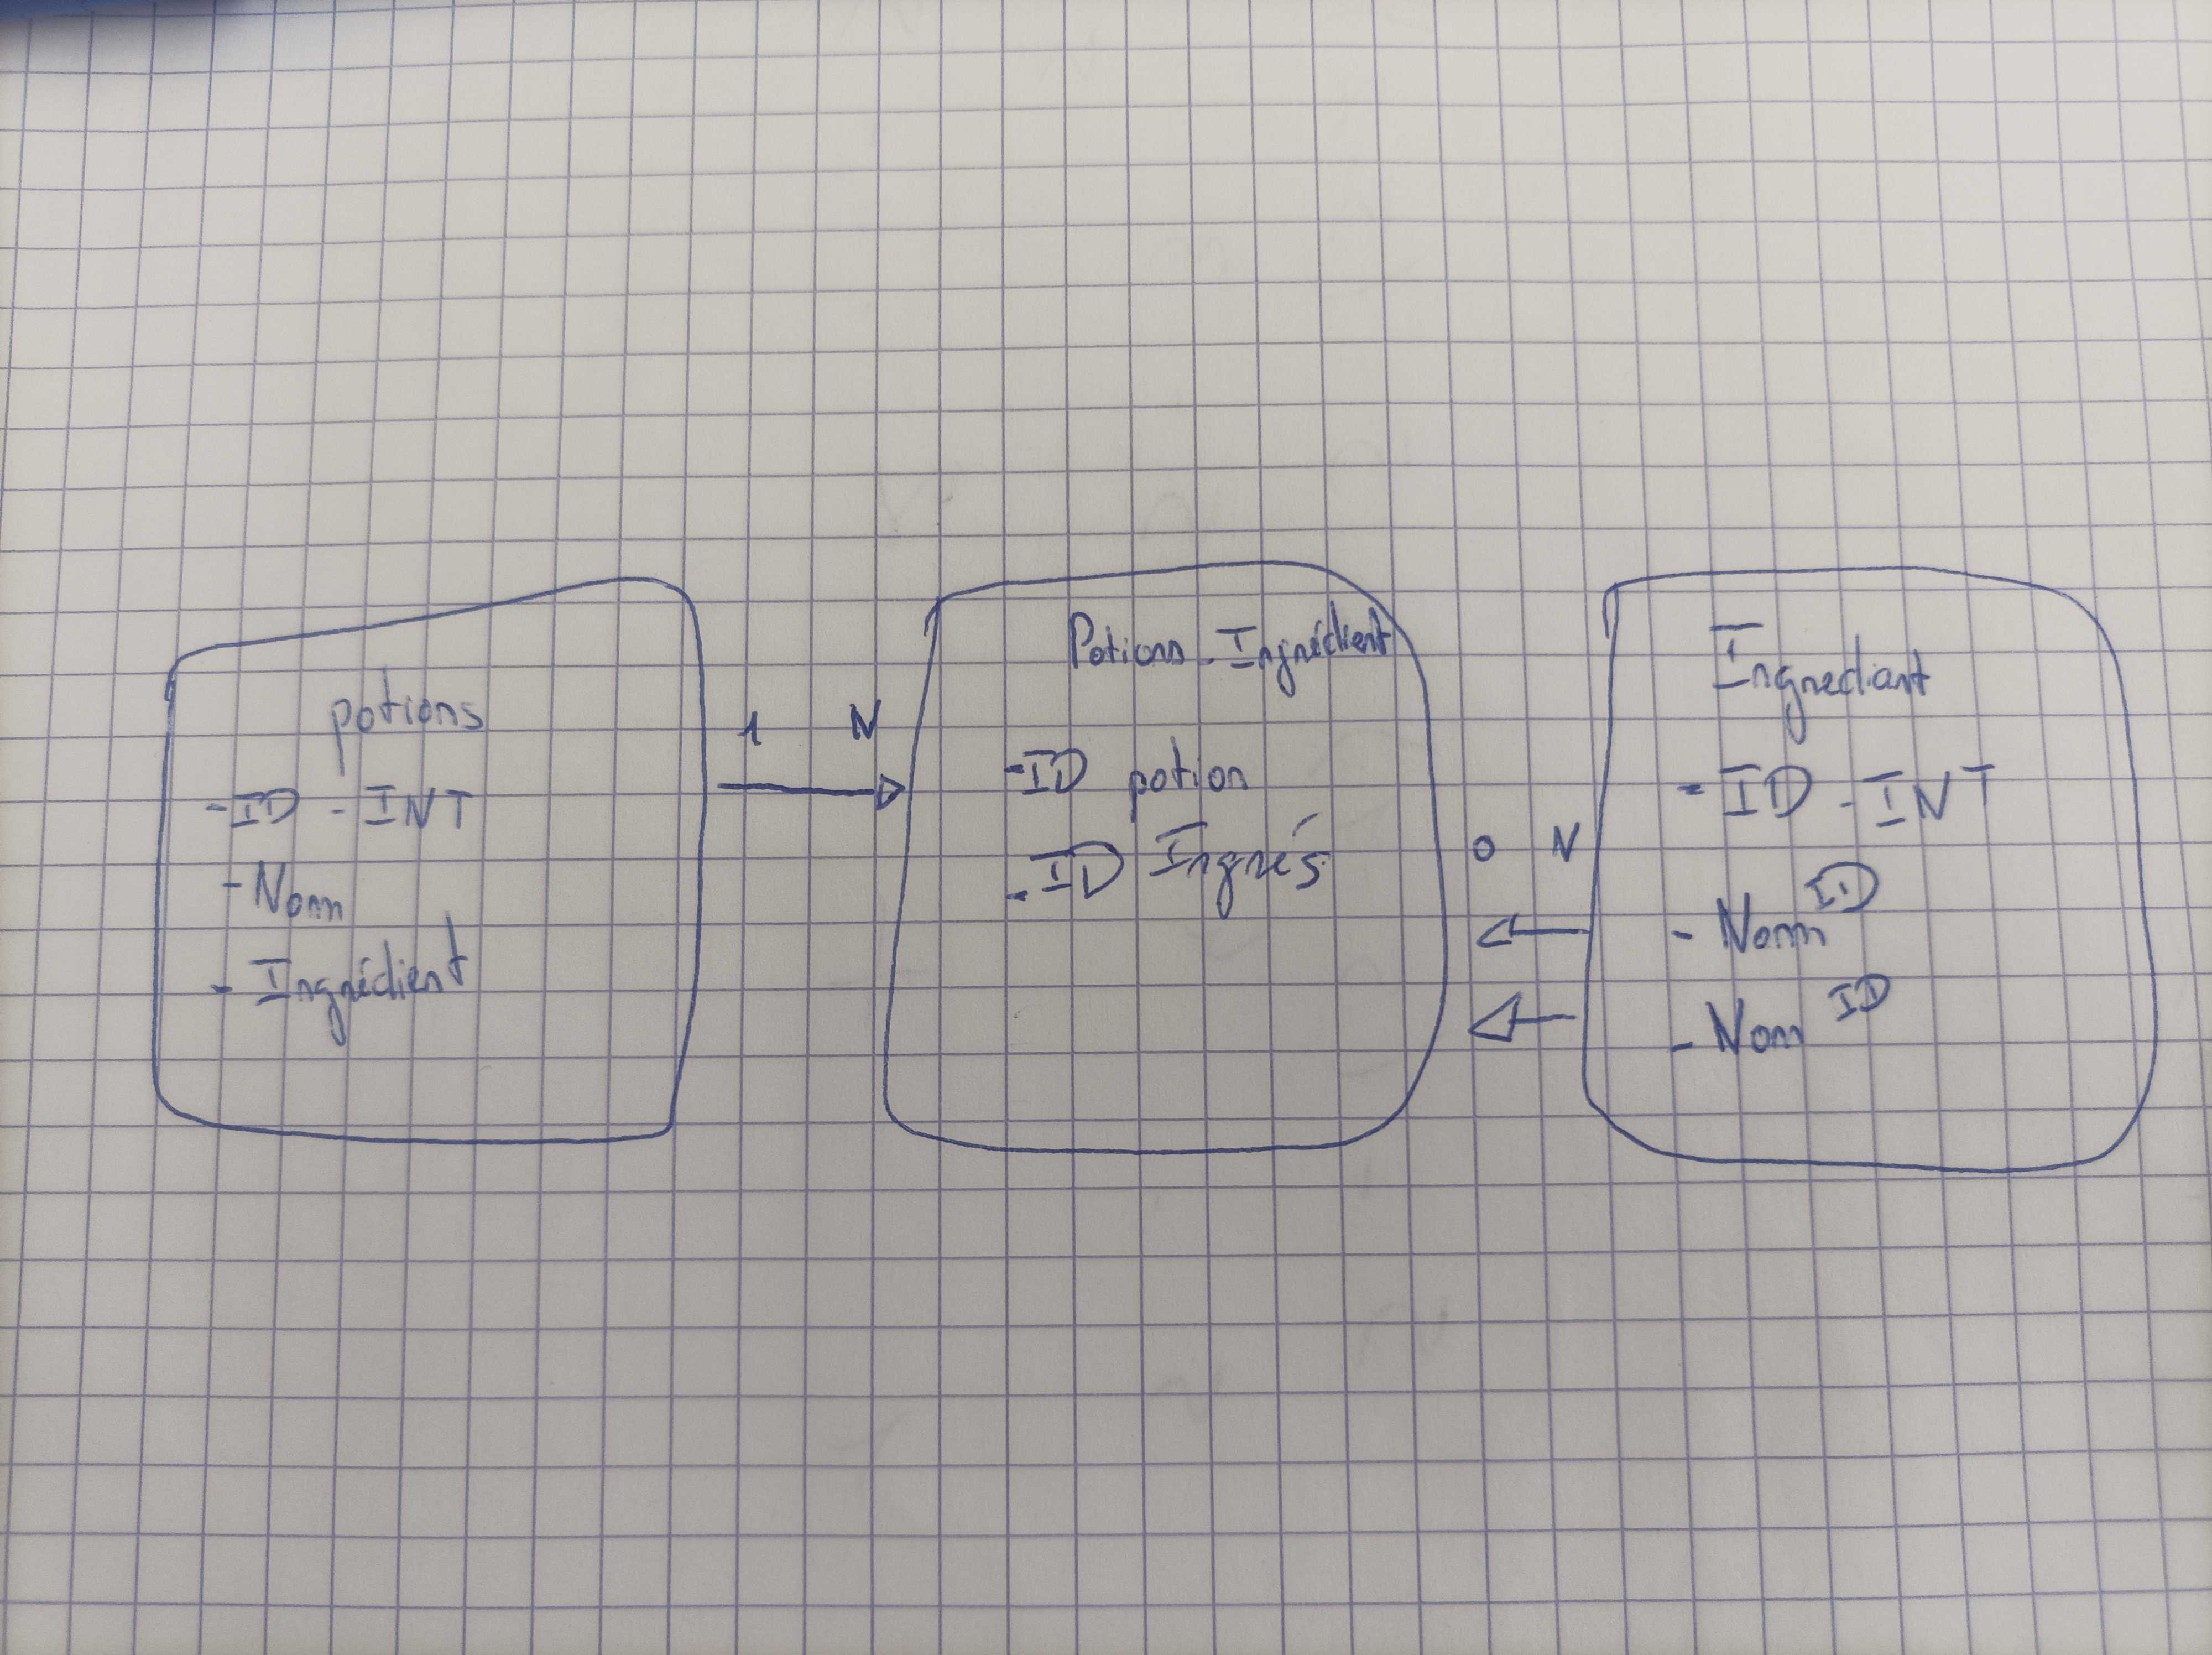 potions
-ID - INT
- Nom
- Ingrédient
1 N
Potions_Ingrédient
-ID potion
-ID Ingrés
0 N
Ingrediant
- ID - INT
- Nom ID
- Nom ID